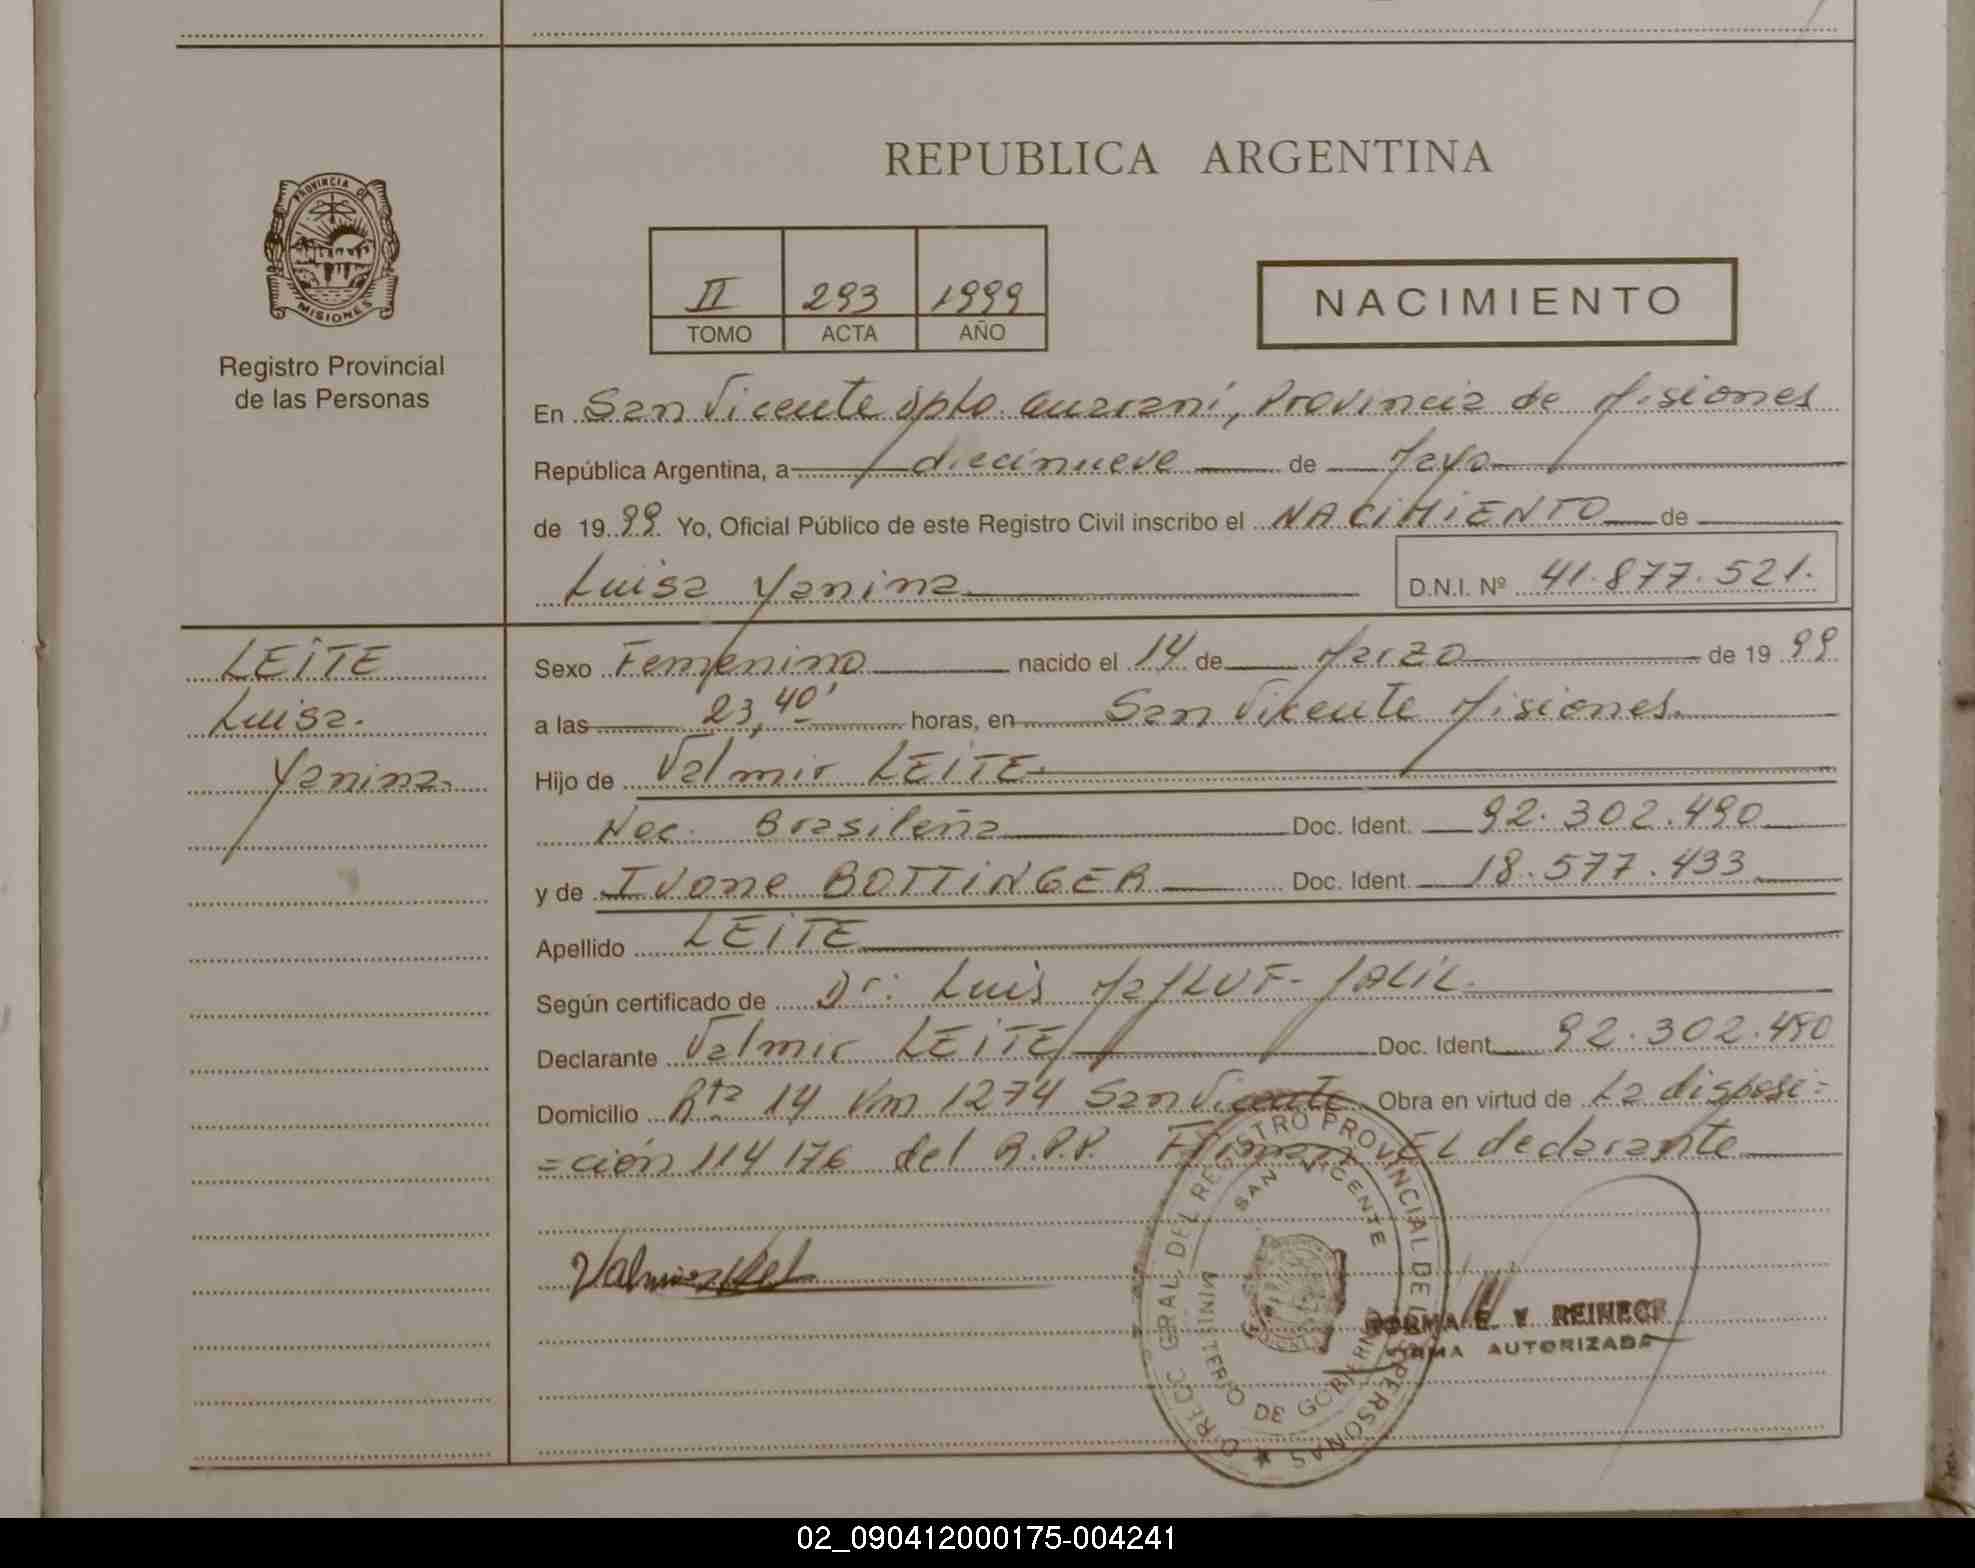 REPUBLICA ARGENTINA
PROVINCIA DE
MISIONES
Registro Provincial
de las Personas
II 293 1999
TOMO ACTA AÑO
NACIMIENTO
En San Vicente Dpto. Guaraní, Provincia de Misiones
República Argentina, a diecinueve de Mayo
de 1999 Yo, Oficial Público de este Registro Civil inscribo el NACIMIENTO de
Luisa Yanina D.N.I. Nº 41.877.521.
LEITE
Luisa.
Yanina.
Sexo Femenino nacido el 14 de Marzo de 1999
a las 23,40' horas, en San Vicente Misiones.
Hijo de Valmir LEITE.
Nac. Brasileña Doc. Ident. 92.302.490
y de Ivone BOTTINGER Doc. Ident. 18.577.433
Apellido LEITE
Según certificado de Dr. Luis
Declarante Valmir LEITE Doc. Ident. 92.302.490
Domicilio Rta 14 Km 1274 San Vicente Obra en virtud de La disposi=
=ción 114176 del R.P.P. Firman EL declarante
DIRECC GRAL. DEL REGISTRO PROVINCIAL DE PERSONAS
SAN VICENTE
MINISTERIO DE GOBIERNO
NORMA E. V. REINECK
FIRMA AUTORIZADA
02_090412000175-004241